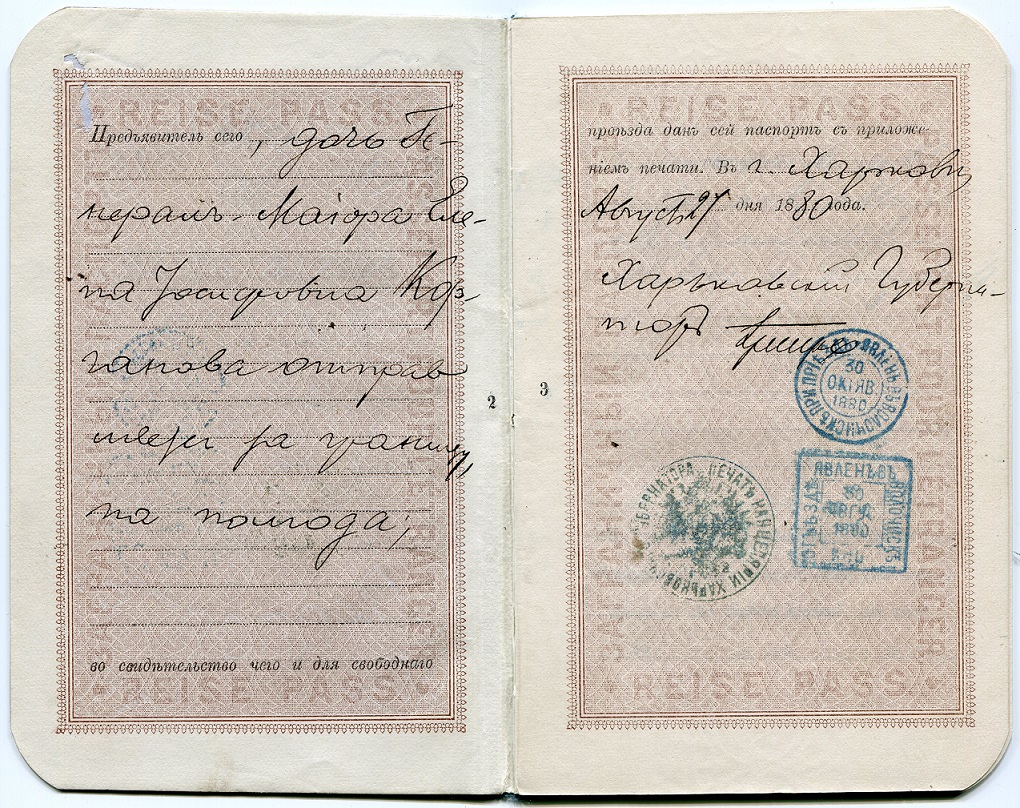 REISE PASS
Предъявитель сего, дочь Ге-
нералъ-Маіора Еле-
на Іосифовна Кор-
ганова отправ
ляется за границу
на полгода,
во свидѣтельство чего и для свободнаго
REISE PASS
2
REISE PASS
проѣзда данъ сей паспортъ съ приложе-
ніемъ печати. Въ г. Харьковѣ
Август 27 дня 1880 года.
Харьковскій Губерна-
торъ
ЯВЛЕНЪ ВЪ ВОЛОЧИСКѢ ПРИ ПРІѢЗДѢ
30
ОКТЯБ.
1880
ПЕЧАТЬ КАНЦЕЛЯРІИ ХАРЬКОВ. ГУБЕРНАТОРА
ЯВЛЕНЪ ВЪ
ВОЛОЧИСКѢ
1880
REISE PASS
3